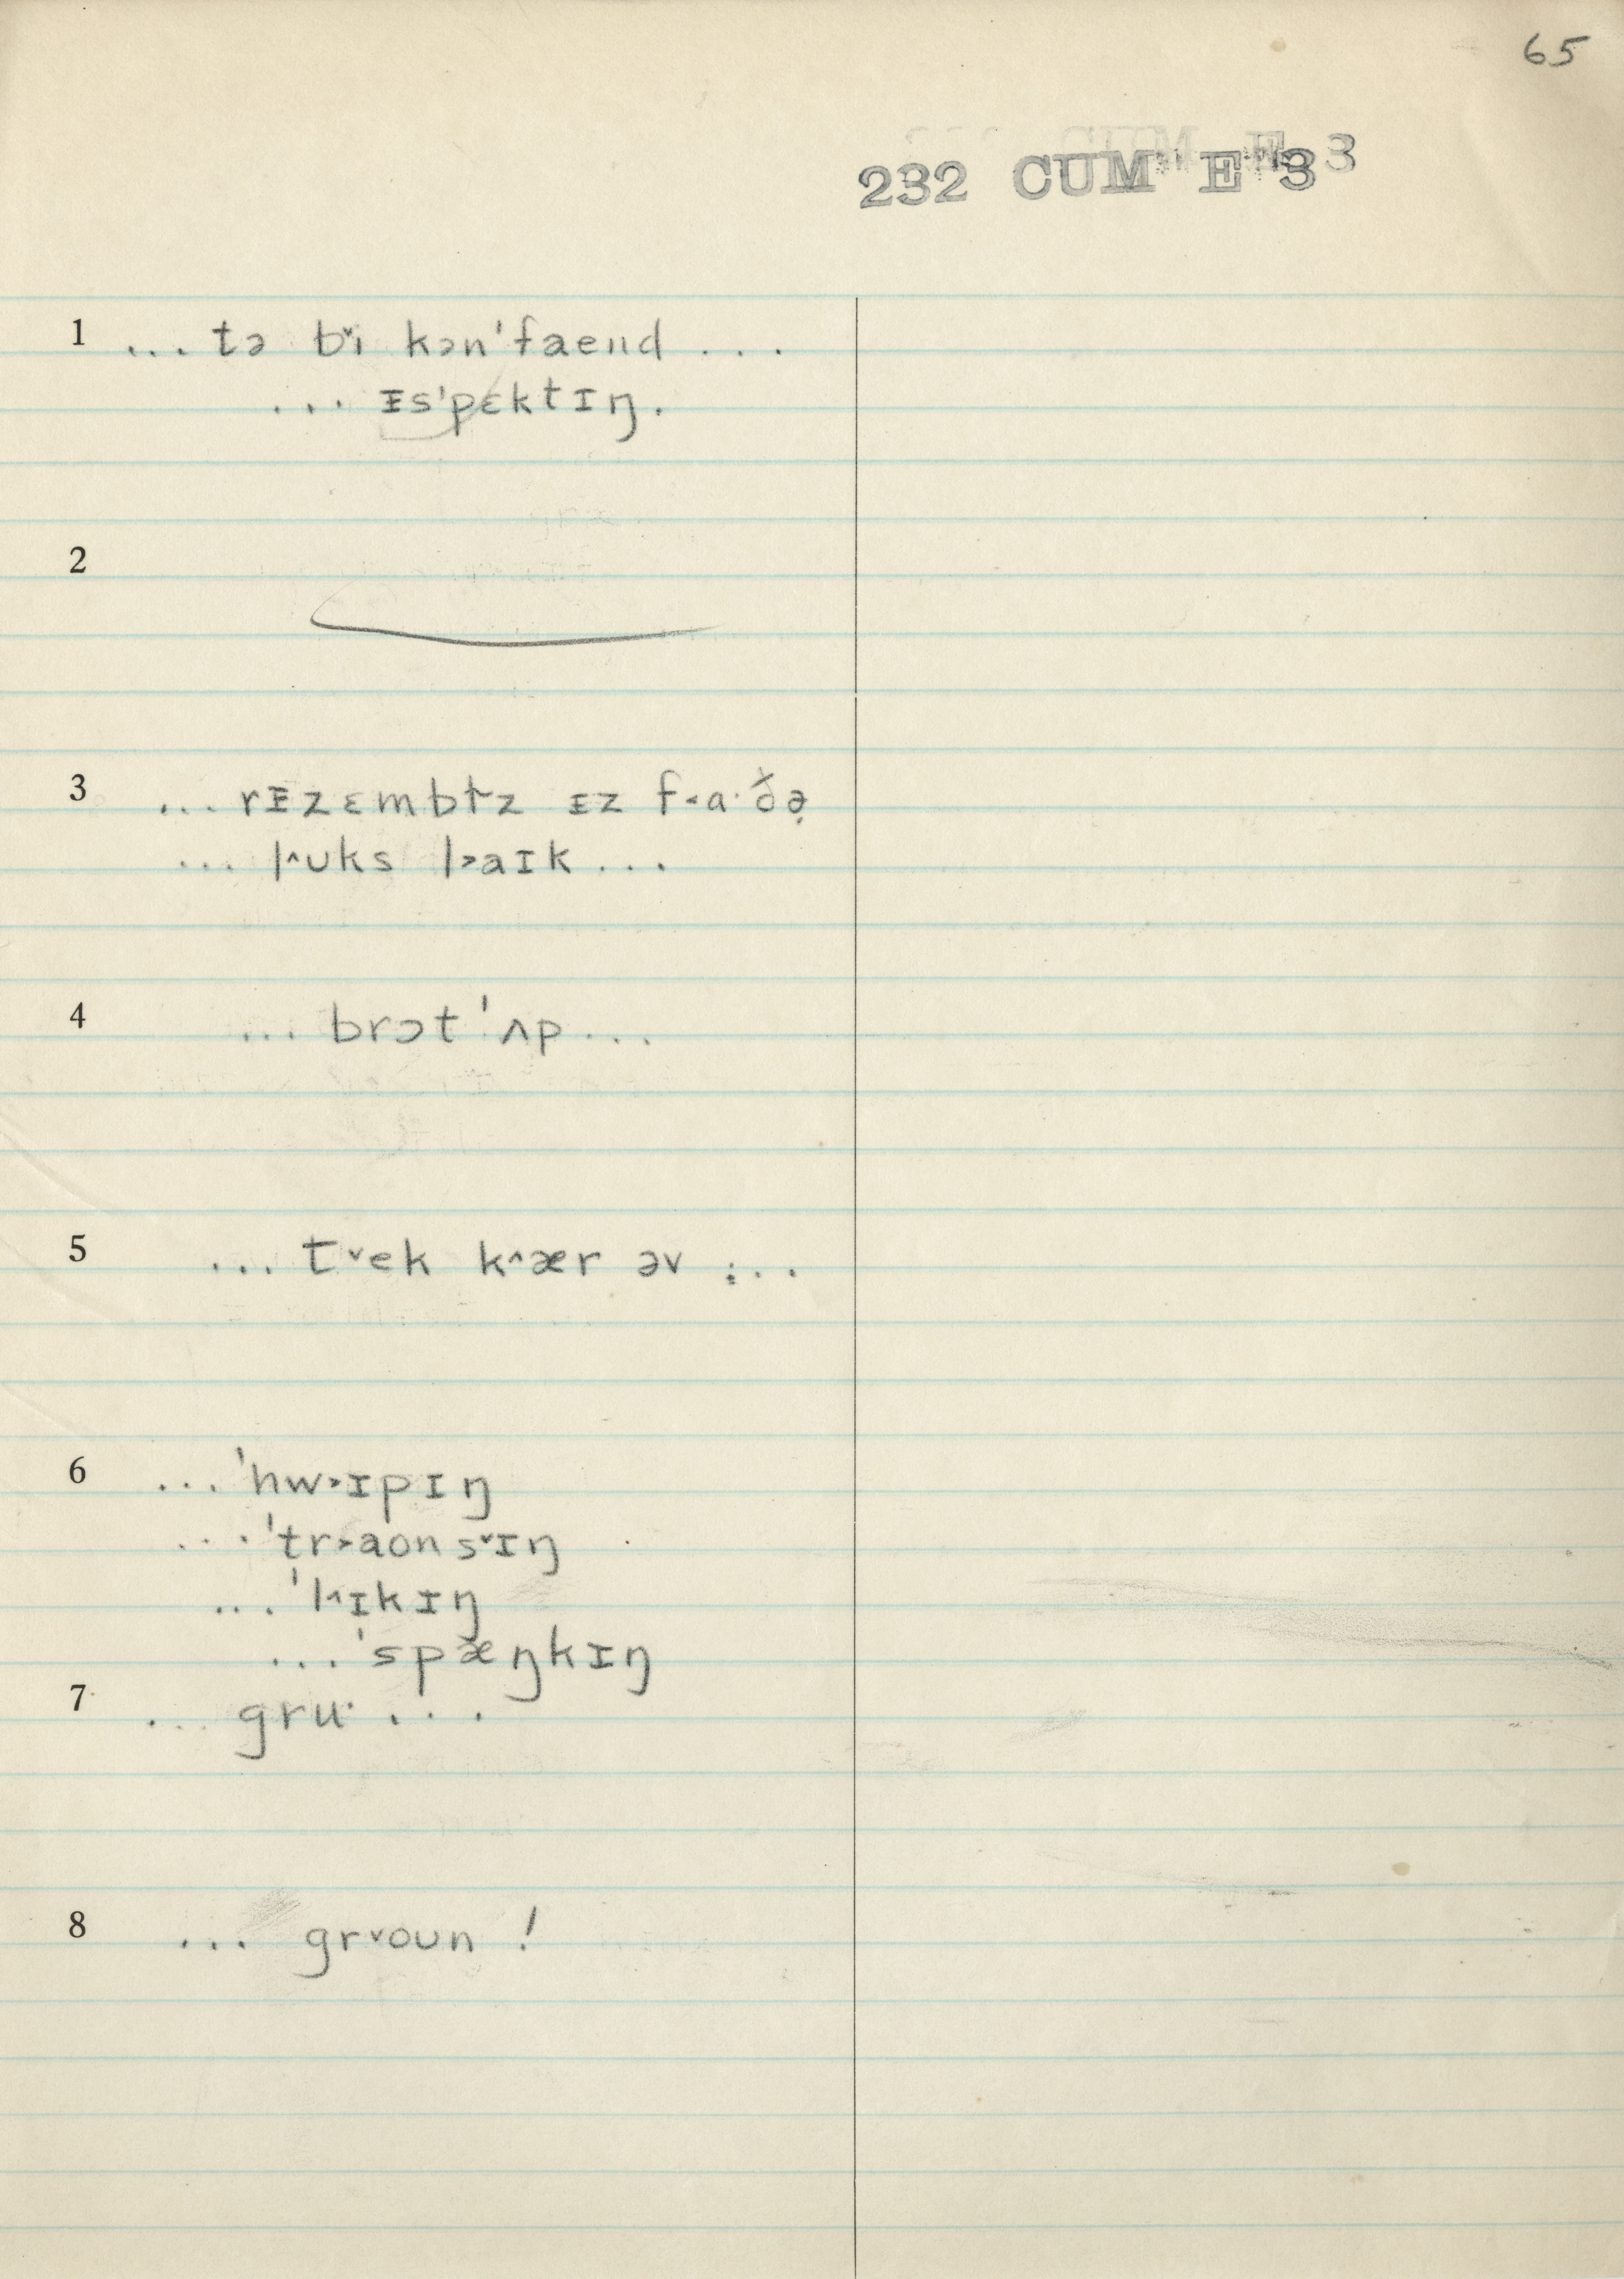 65
232 CUM E 3
1 ... tə b˅i kən'faend ...
... ᵻs'pɛktɪŋ.
2
3 ... rᵻzɛmbɫz ɪz f˂a·ðə̣
... l˄ʊks l˃aɪk ...
4 ... brɔt 'ʌp ...
5 ... t˅ek k˄ær əv ...
6 ... 'hw˃ɪpɪŋ
... 'tr˃aonsˇɪŋ
... 'l˄ɪkɪŋ
... 'spæŋkɪŋ
7 ... gru· ...
8 ... gr˅oun !